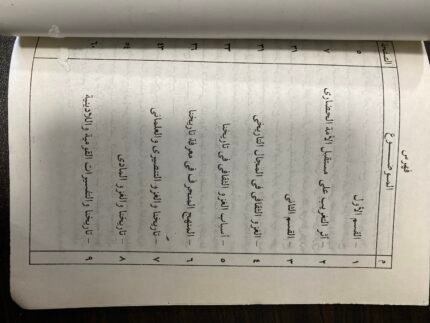 فهرس
م الموضوع الصفحة
١ - القسم الأول ٥
٢ - أثر التغريب على مستقبل الأمة الحضارى ٧
٣ - القسم الثانى ٢٩
٤ - الغزو الثقافى فى المجال التاريخى ٣١
٥ - أسباب الغزو الثقافى فى تاريخنا ٣٣
٦ - المنهج المنحرف فى معرفة تاريخنا ٣٦
٧ - تاريخنا والغزو التنصيرى والعلمانى ٤٣
٨ - تاريخنا والغزو المادى
٩ - تاريخنا والتفسيرات القومية واللادينية